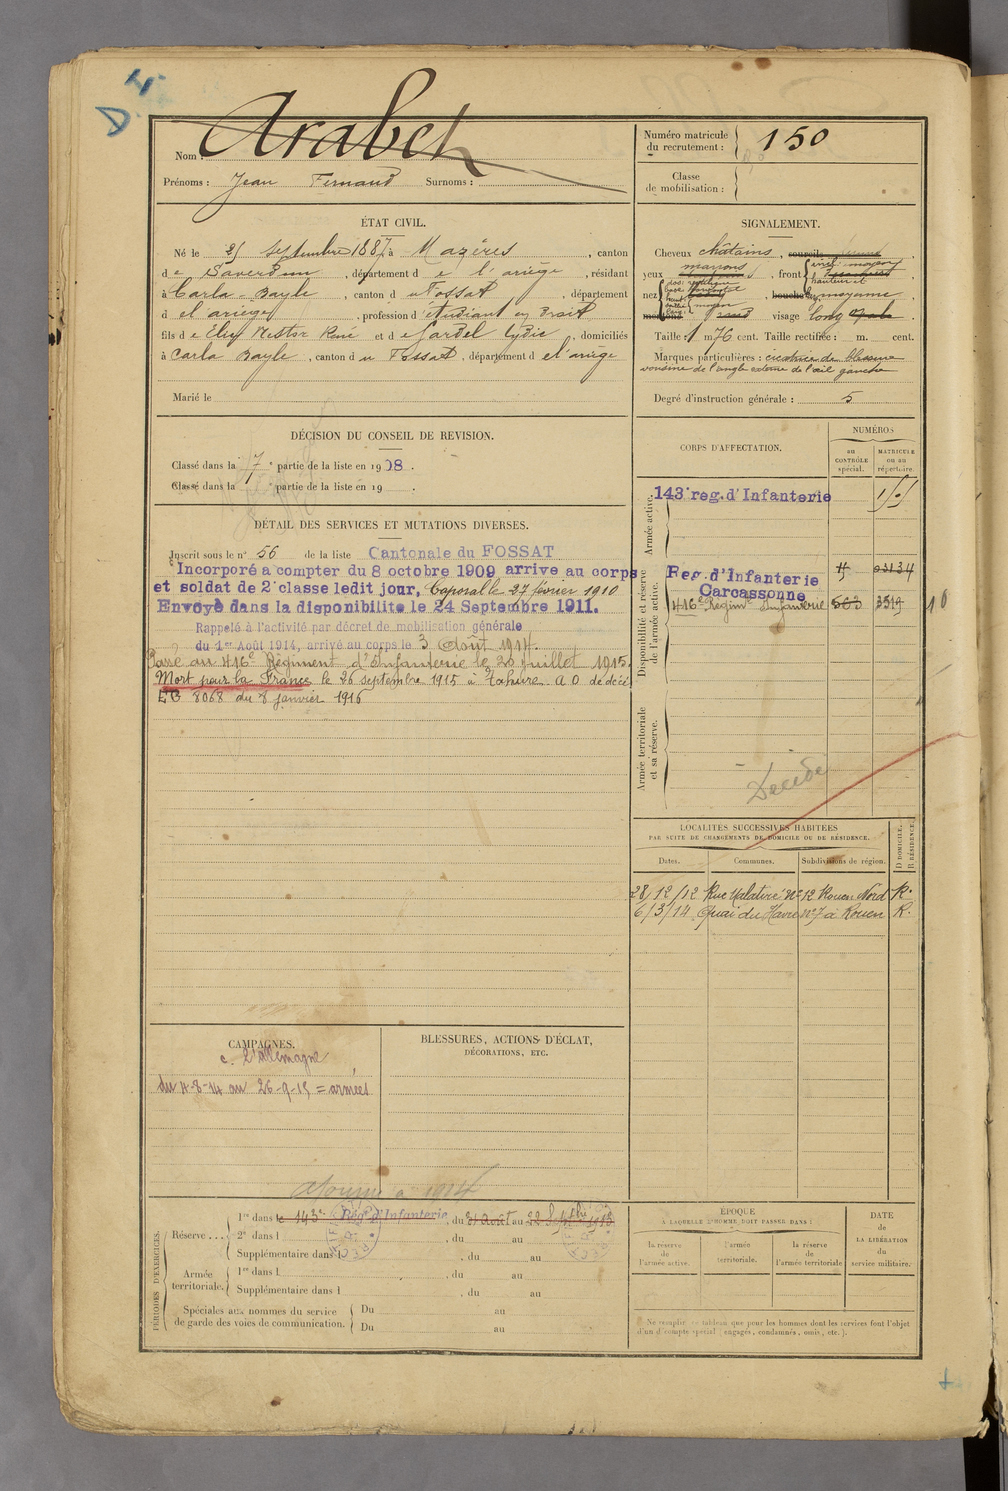 D 4
Nom : Arabet
Prénoms : Jean Fernand Surnoms :
Numéro matricule du recrutement : 150
Classe de mobilisation :
ÉTAT CIVIL.
Né le 25 septembre 1887, à Mazères, canton
de Saverdun, département de l'ariège, résidant
à Carla-Bayle, canton du Fossat, département
d el'ariège, profession d'étudiant en droit
fils de Elie Nestor René et de Gardel Lydie, domiciliés
à Carla Bayle, canton du Fossat, département de l'ariège
Marié le
SIGNALEMENT.
Cheveux châtains, sourcils
yeux marrons, front incl. moyen
hauteur id
nez dos rectiligne
base
haut
saillie moyen
larg.
bouche moyenne
menton rond visage long ovale
Taille : 1 m. 76 cent. Taille rectifiée : m. cent.
Marques particulières : cicatrice de blessure
voisine de l'angle externe de l'œil gauche
Degré d'instruction générale : 5
DÉCISION DU CONSEIL DE REVISION.
Classé dans la 7e partie de la liste en 1908.
Classé dans la partie de la liste en 19 .
DÉTAIL DES SERVICES ET MUTATIONS DIVERSES.
Inscrit sous le n° 56 de la liste Cantonale du FOSSAT
Incorporé a compter du 8 octobre 1909 arrive au corps
et soldat de 2e classe ledit jour, Caporal le 27 février 1910
Envoyé dans la disponibilite le 24 Septembre 1911.
Rappelé à l'activité par décret de mobilisation générale
du 1er Août 1914, arrivé au corps le 3 Août 1914.
Passé au 416e Régiment d'Infanterie le 20 juillet 1915.
Mort pour la France le 26 septembre 1915 à Tahure. A O de décès
EB 8068 du 8 janvier 1916
CORPS D'AFFECTATION.
NUMÉROS
au CONTRÔLE spécial.
MATRICULE ou au répertoire.
Armée active.
143e reg. d'Infanterie
Disponibilité et réserve de l'armée active.
Reg. d'Infanterie
Carcassonne
416e Régimt Infanterie 563 3519
10
Armée territoriale et sa réserve.
Décédé
LOCALITÉS SUCCESSIVES HABITÉES
PAR SUITE DE CHANGEMENTS DE DOMICILE OU DE RÉSIDENCE.
Dates. Communes. Subdivisions de région. D DOMICILE, R RÉSIDENCE.
28/12/12 Rue Malatiré N° 12 Rouen Nord R.
6/3/14 Quai du Havre n° 7 à Rouen R.
CAMPAGNES.
c. L'allemagne
du 4-8-14 au 26-9-15 = armées
BLESSURES, ACTIONS D'ÉCLAT,
DÉCORATIONS, ETC.
Ajourné à 1914
PÉRIODES D'EXERCICES.
Réserve ... 1re dans le 143e Régt d'Infanterie, du 31 août au 22 Septbre 1913
2e dans l , du au
Supplémentaire dans l , du au
Armée territoriale. 1re dans l , du au
Supplémentaire dans l , du au
Spéciales aux hommes du service de garde des voies de communication. Du au
Du au
ÉPOQUE
À LAQUELLE L'HOMME DOIT PASSER DANS :
la réserve de l'armée active.
l'armée territoriale.
la réserve de l'armée territoriale
DATE de LA LIBÉRATION du service militaire.
Ne remplir ce tableau que pour les hommes dont les services font l'objet
d'un décompte spécial (engagés, condamnés, omis, etc.).